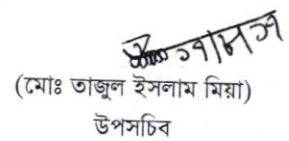 (মোঃ তাজুল ইসলাম মিয়া)
উপসচিব